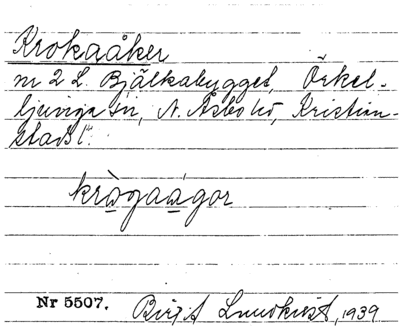 Krokaåker
nr 2 L. Bjälkabygget, Örkel-
ljunga sn, N. Åsbo hd, Kristian-
stads l.
krògaágor
Nr 5507. Birgit Lundkvist, 1939